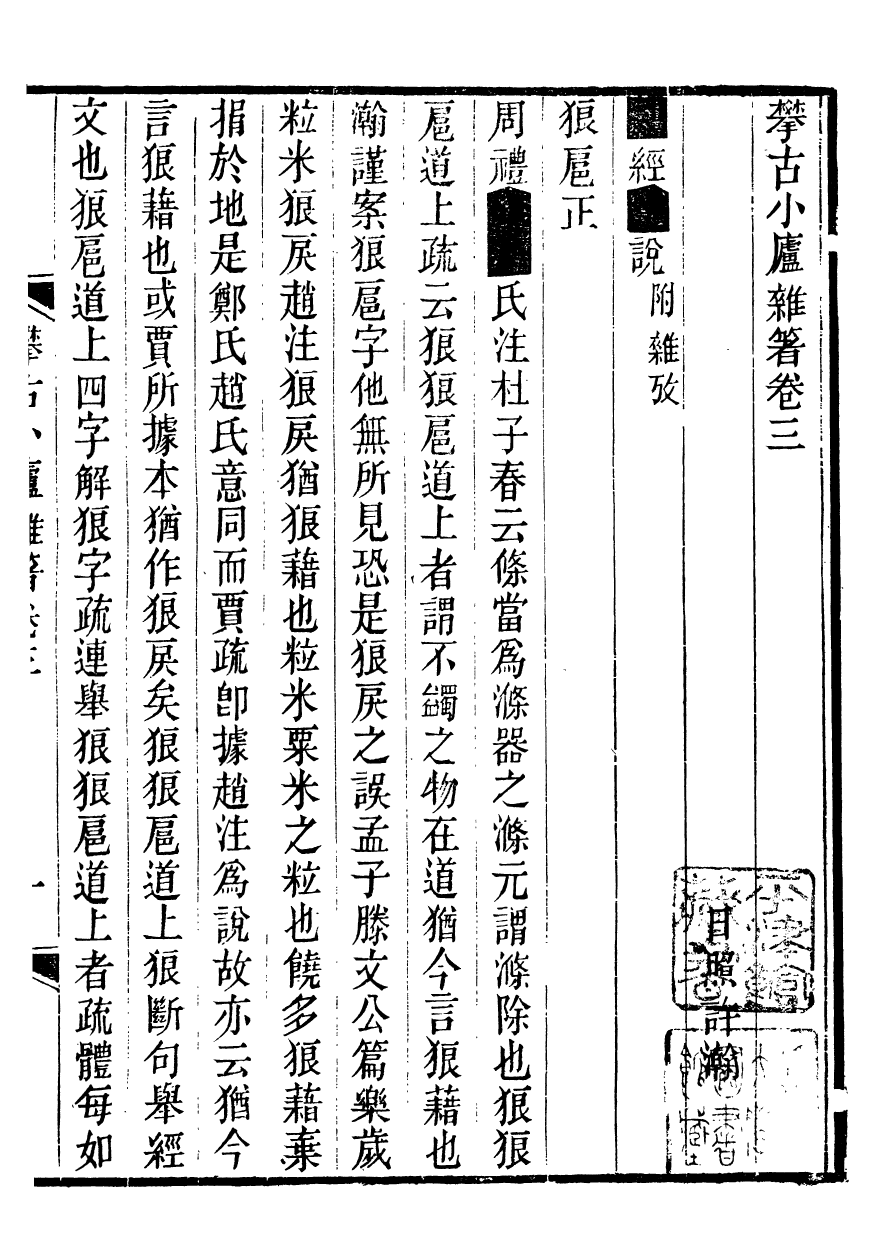 攀古小廬雜箸卷三
日照許瀚
經說附雜攷
狼扈正
周禮氏注杜子春云條當爲滌器之滌元謂滌除也狼狼
扈道上疏云狼狼扈道上者謂不蠲之物在道猶今言狼藉也
瀚謹案狼扈字他無所見恐是狼戾之誤孟子滕文公篇樂歲
粒米狼戾趙注狼戾猶狼藉也粒米粟米之粒也饒多狼藉棄
捐於地是鄭氏趙氏意同而賈疏卽據趙注爲說故亦云猶今
言狼藉也或賈所據本猶作狼戾矣狼狼扈道上狼斷句舉經
文也狼扈道上四字解狼字疏連舉狼狼扈道上者疏體每如
攀古小廬雜箸卷三
一